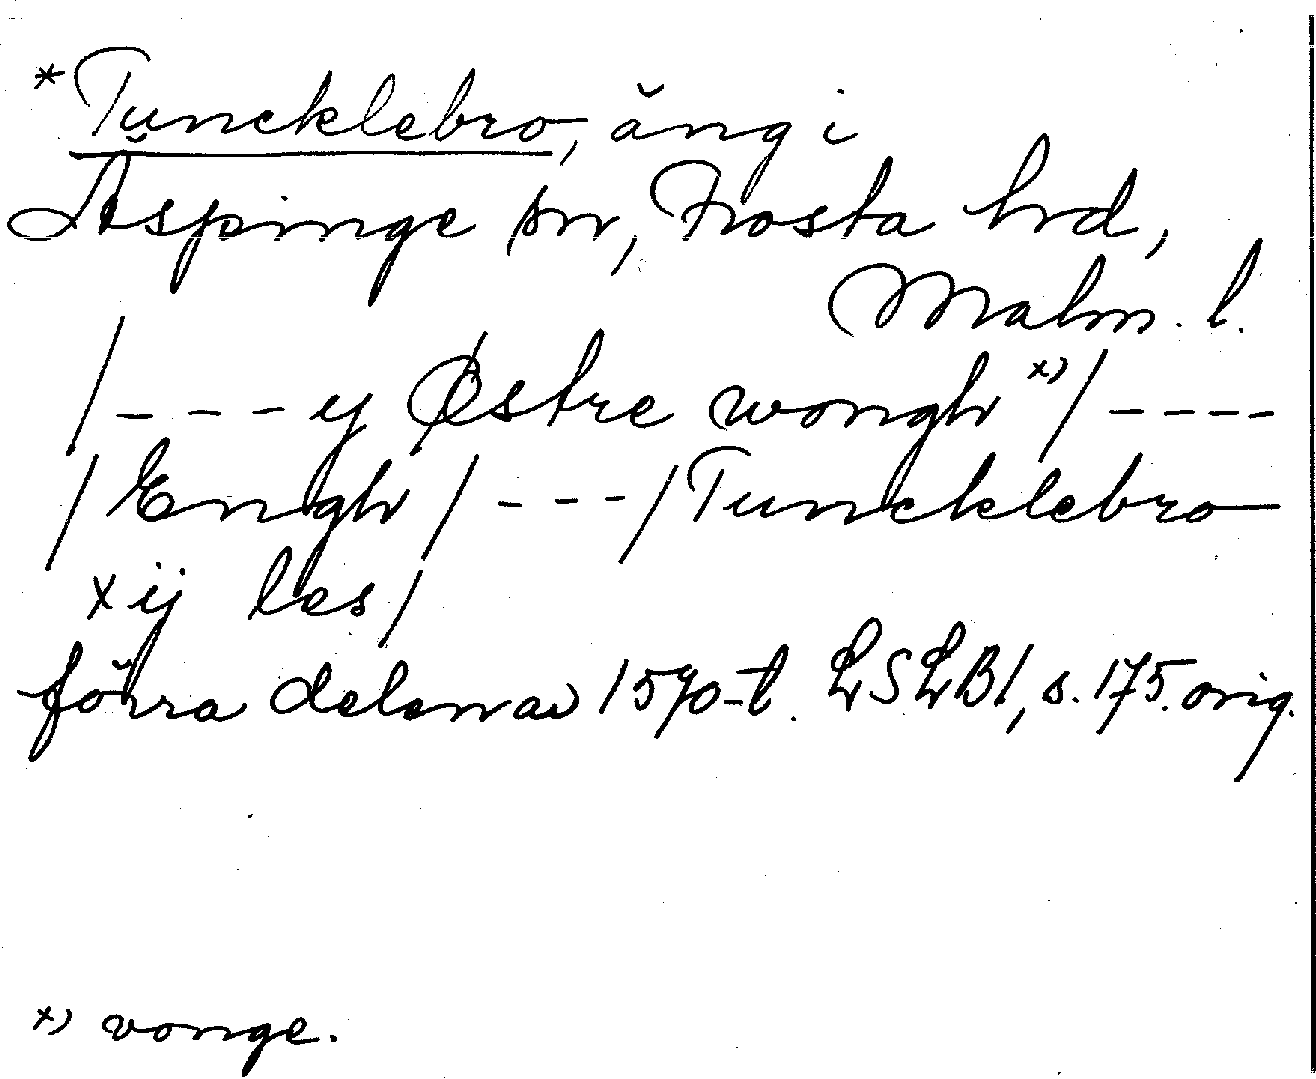 *Tuncklebro, äng i
Äspinge sn, Frosta hrd,
Malm. l.
/ - - - y Østre wongh x) / - - - -
/ Engh / - - - / Tuncklebro
xij les /
förra delen av 1570-t. LSLB1, s. 175. orig.
x) vonge.